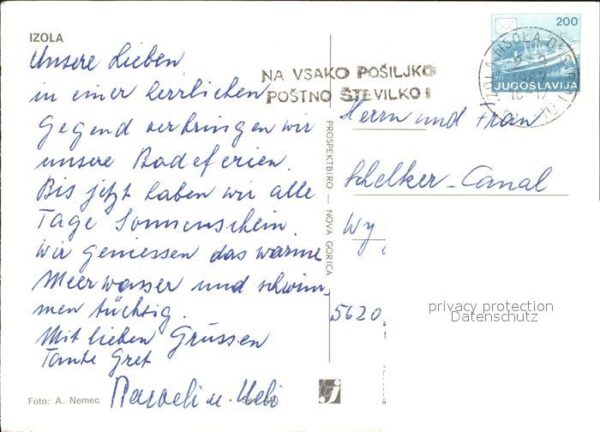 IZOLA
Unsere Lieben
in einer herrlichen
Gegend verbringen wir
unsere Badeferien.
Bis jetzt haben wir alle
Tage Sonnenschein.
Wir geniessen das warme
Meerwasser und schwim-
men tüchtig.
Mit lieben Grüssen
Tante Gret
u.
Foto: A. Nemec
PROSPEKTBIRO — NOVA GORICA
NA VSAKO POŠILJKO
POŠTNO ŠTEVILKO!
200
JUGOSLAVIJA
IZOLA ISOLA
Herrn und Frau
Schelker-Canal
Wy
5620
privacy protection
Datenschutz